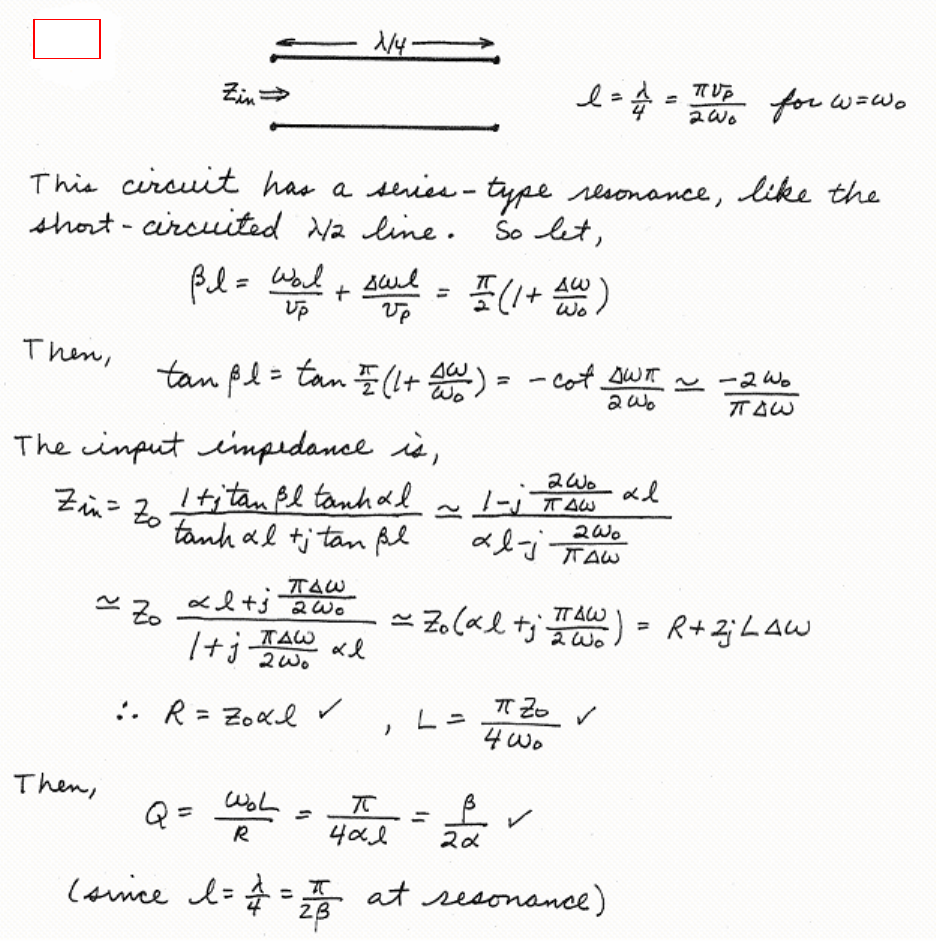 λ/4
Zin ⇒
l = λ/4 = πvp/2ω₀ for ω=ω₀
This circuit has a series-type resonance, like the
short-circuited λ/2 line. So let,
βl = ω₀l/vp + Δωl/vp = π/2 (1 + Δω/ω₀)
Then,
tan βl = tan π/2 (1 + Δω/ω₀) = -cot Δωπ/2ω₀ ≃ -2ω₀/πΔω
The input impedance is,
Zin = Z₀ (1+j tan βl tanh αl)/(tanh αl + j tan βl) ≃ (1-j 2ω₀/πΔω αl)/(αl-j 2ω₀/πΔω)
≃ Z₀ (αl+j πΔω/2ω₀)/(1+j πΔω/2ω₀ αl) ≃ Z₀(αl + j πΔω/2ω₀) = R+2jLΔω
∴ R = Z₀αl ✓ , L = πZ₀/4ω₀ ✓
Then,
Q = ω₀L/R = π/4αl = β/2α ✓
(since l = λ/4 = π/2β at resonance)